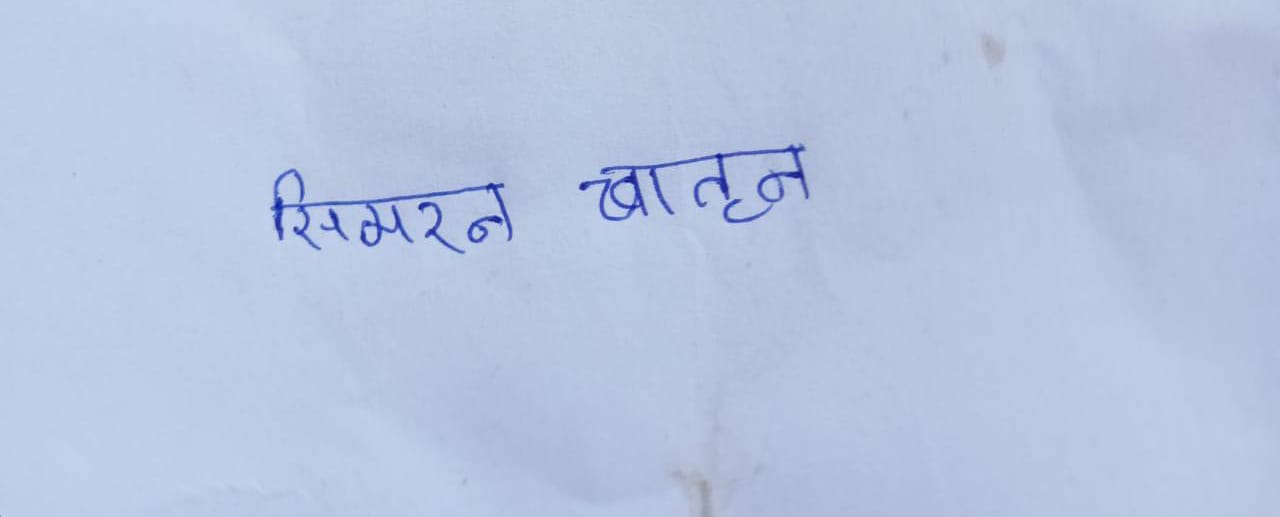 सिमरन खातून